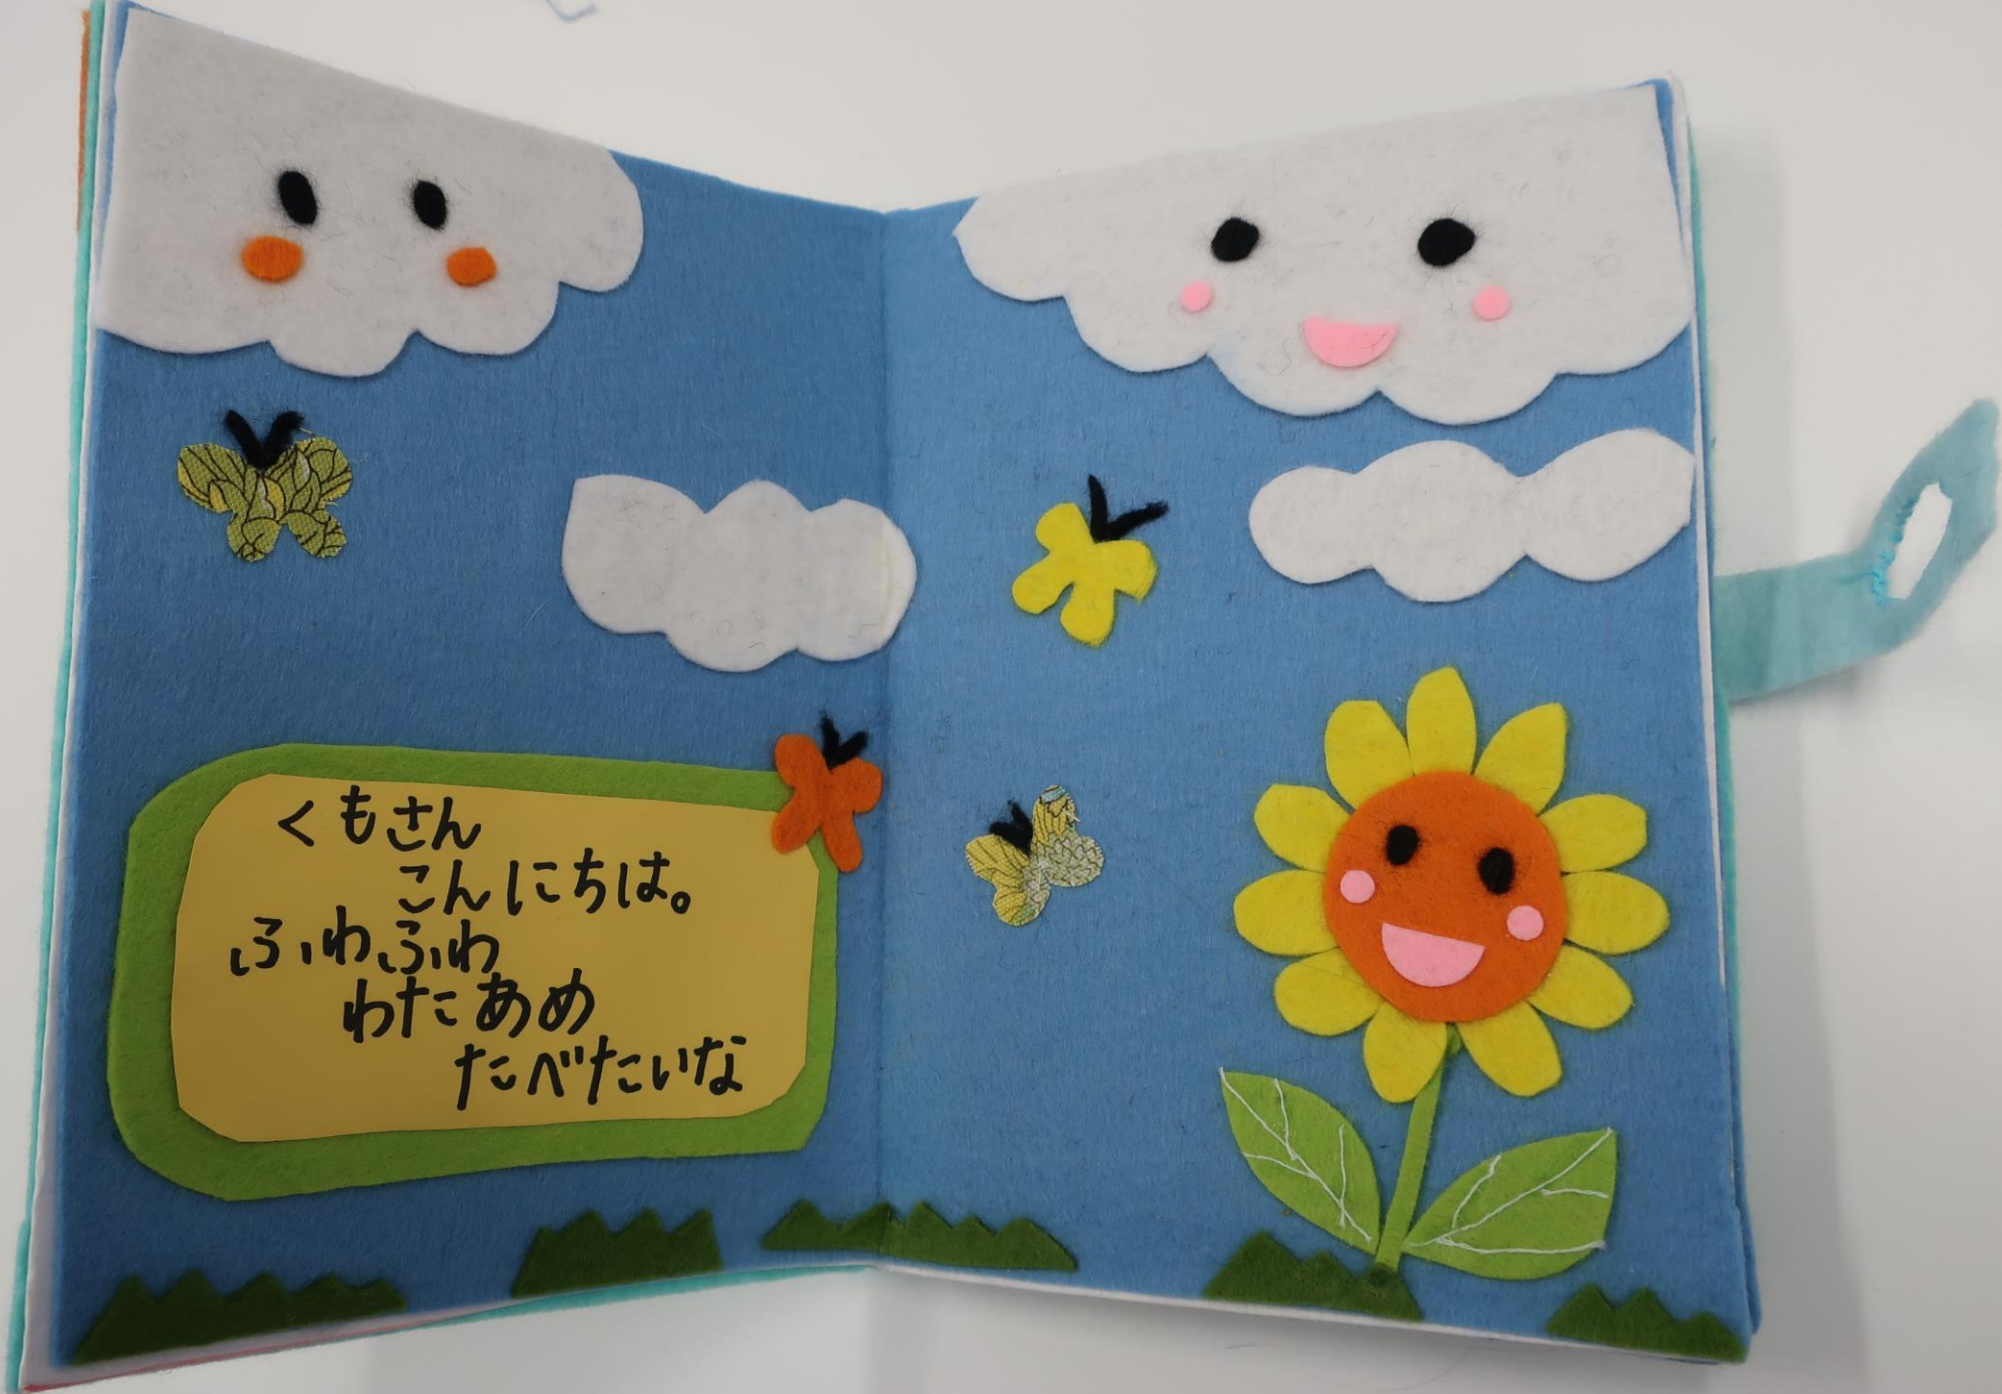 くもさん
こんにちは。
ふわふわ
わたあめ
たべたいな